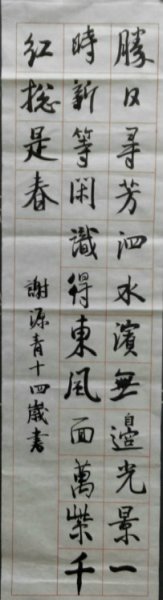 勝日尋芳泗水濱無邊光景一
時新等閑識得東風面萬柴千
紅捴是春
謝源青十四歲書